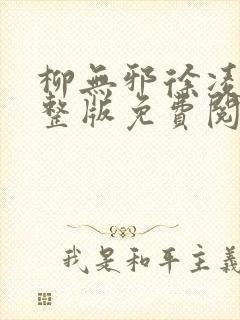 柳無邪徐凌
整版免費閱
我是和平主義